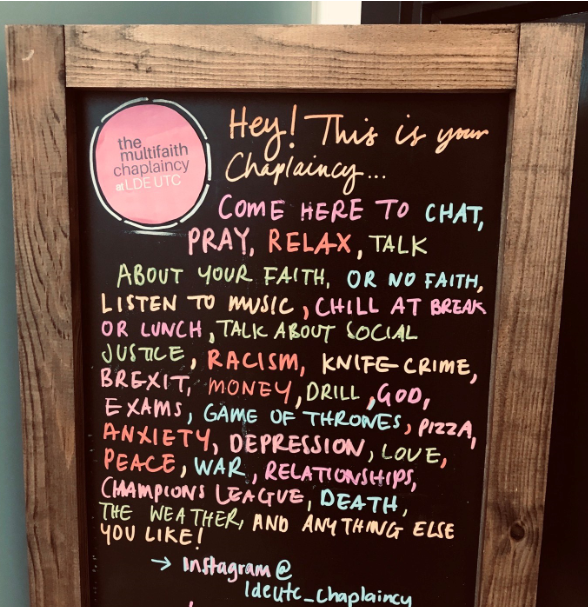 the
multifaith
chaplaincy
at LDE UTC
Hey! This is your
Chaplaincy...
COME HERE TO CHAT,
PRAY, RELAX, TALK
ABOUT YOUR FAITH, OR NO FAITH,
LISTEN TO MUSIC, CHILL AT BREAK
OR LUNCH, TALK ABOUT SOCIAL
JUSTICE, RACISM, KNIFE CRIME,
BREXIT, MONEY, DRILL, GOD,
EXAMS, GAME OF THRONES, PIZZA,
ANXIETY, DEPRESSION, LOVE,
PEACE, WAR, RELATIONSHIPS,
CHAMPIONS LEAGUE, DEATH,
THE WEATHER, AND ANYTHING ELSE
YOU LIKE!
→ Instagram @
ldeutc_chaplaincy